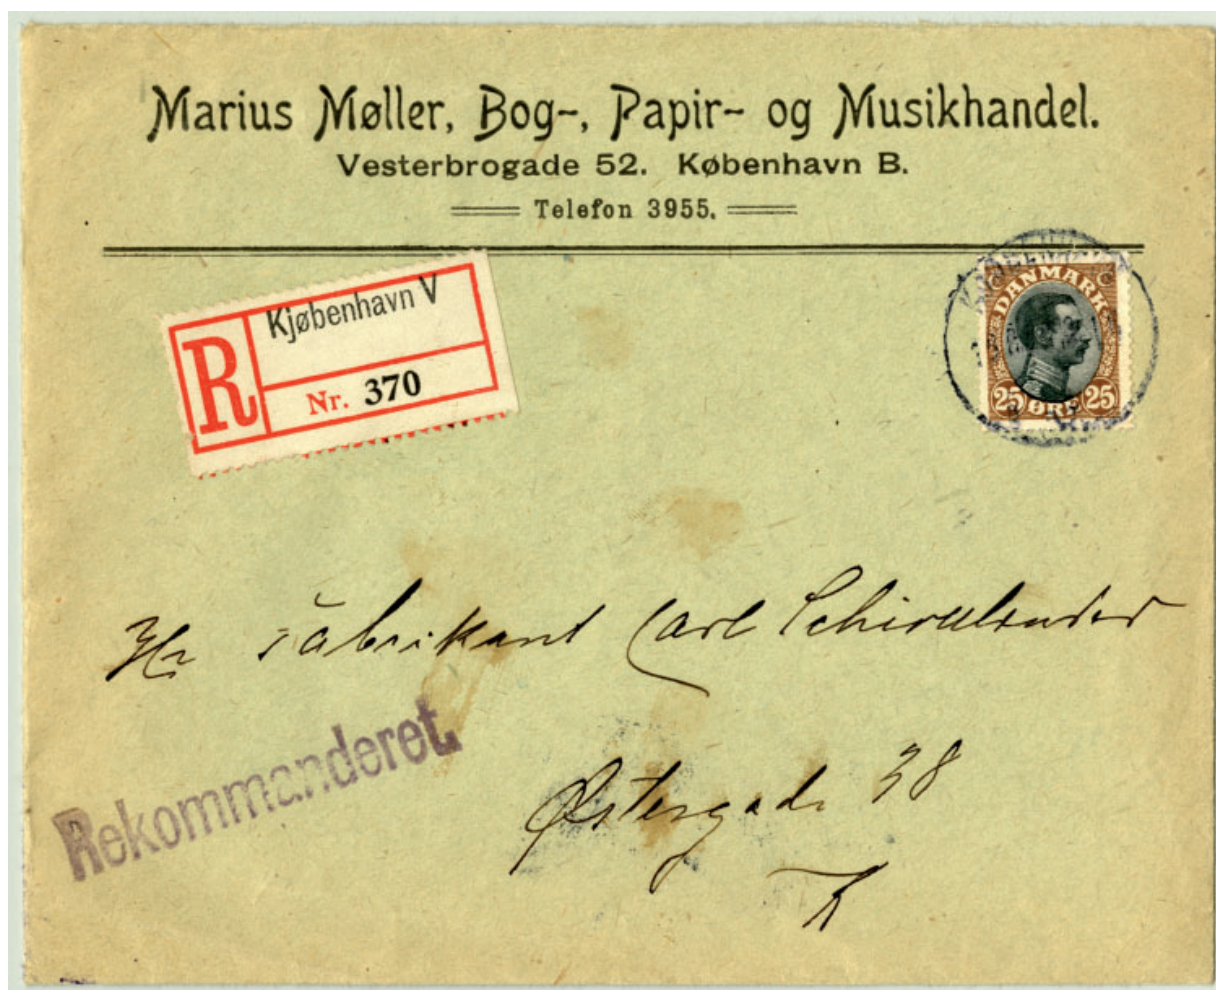 Marius Møller, Bog-, Papir- og Musikhandel.
Vesterbrogade 52. København B.
Telefon 3955.
R
Kjøbenhavn V
Nr. 370
DANMARK
25 ØRE 25
Hr Fabrikant Carl
Rekommanderet.
Østergade 38
K